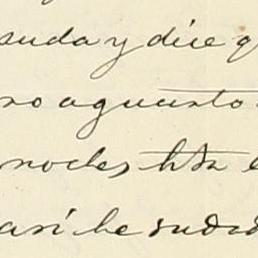 suda y dice q
no aguanto
noches hta e
asi he sudad